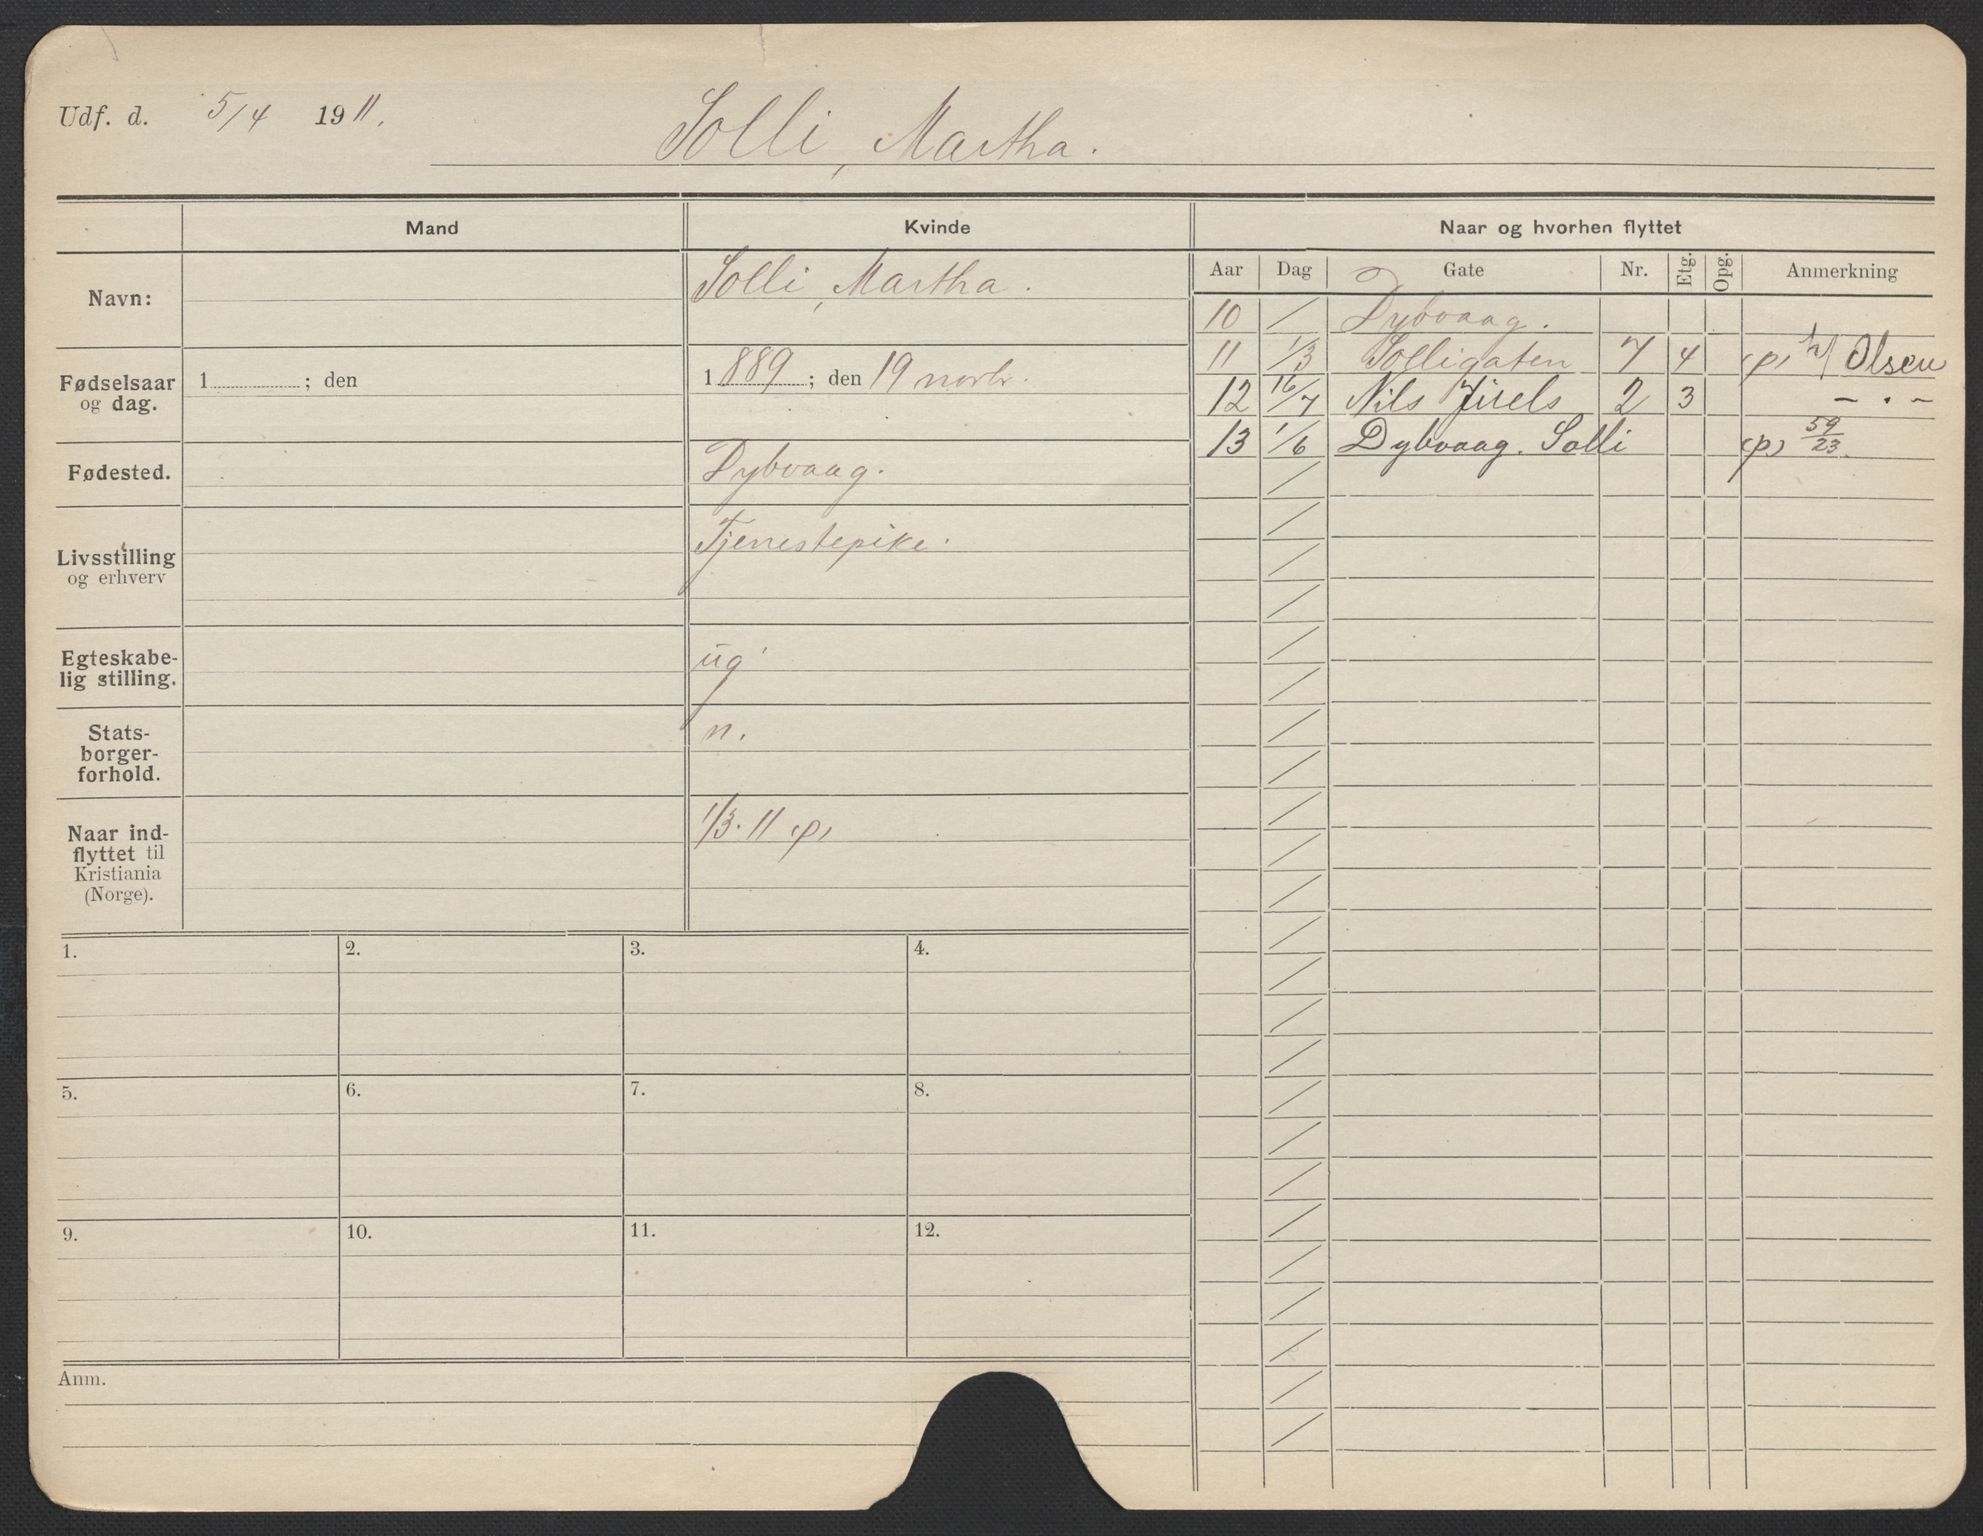 Udf. d. 5/4 1911.
Solli, Martha.
Mand Kvinde Naar og hvorhen flyttet
Aar Dag Gate Nr. Etg. Opg. Anmerkning
Navn: Solli, Martha.
10 / Dybvaag.
11 1/3 Solligaten 7 4 (p) h/ Olsen
12 16/7 Nils Juels 2 3 – . –
13 1/6 Dybvaag. Solli (p) 59/23.
Fødselsaar og dag. 1 ; den 1889 ; den 19 novbr.
Fødested. Dybvaag.
Livsstilling og erhverv Tjenestepike.
Egteskabe-
lig stilling. ug
Stats-
borger-
forhold. n.
Naar ind-
flyttet til
Kristiania
(Norge). 1/3. 11 (p)
1. 2. 3. 4.
5. 6. 7. 8.
9. 10. 11. 12.
Anm.